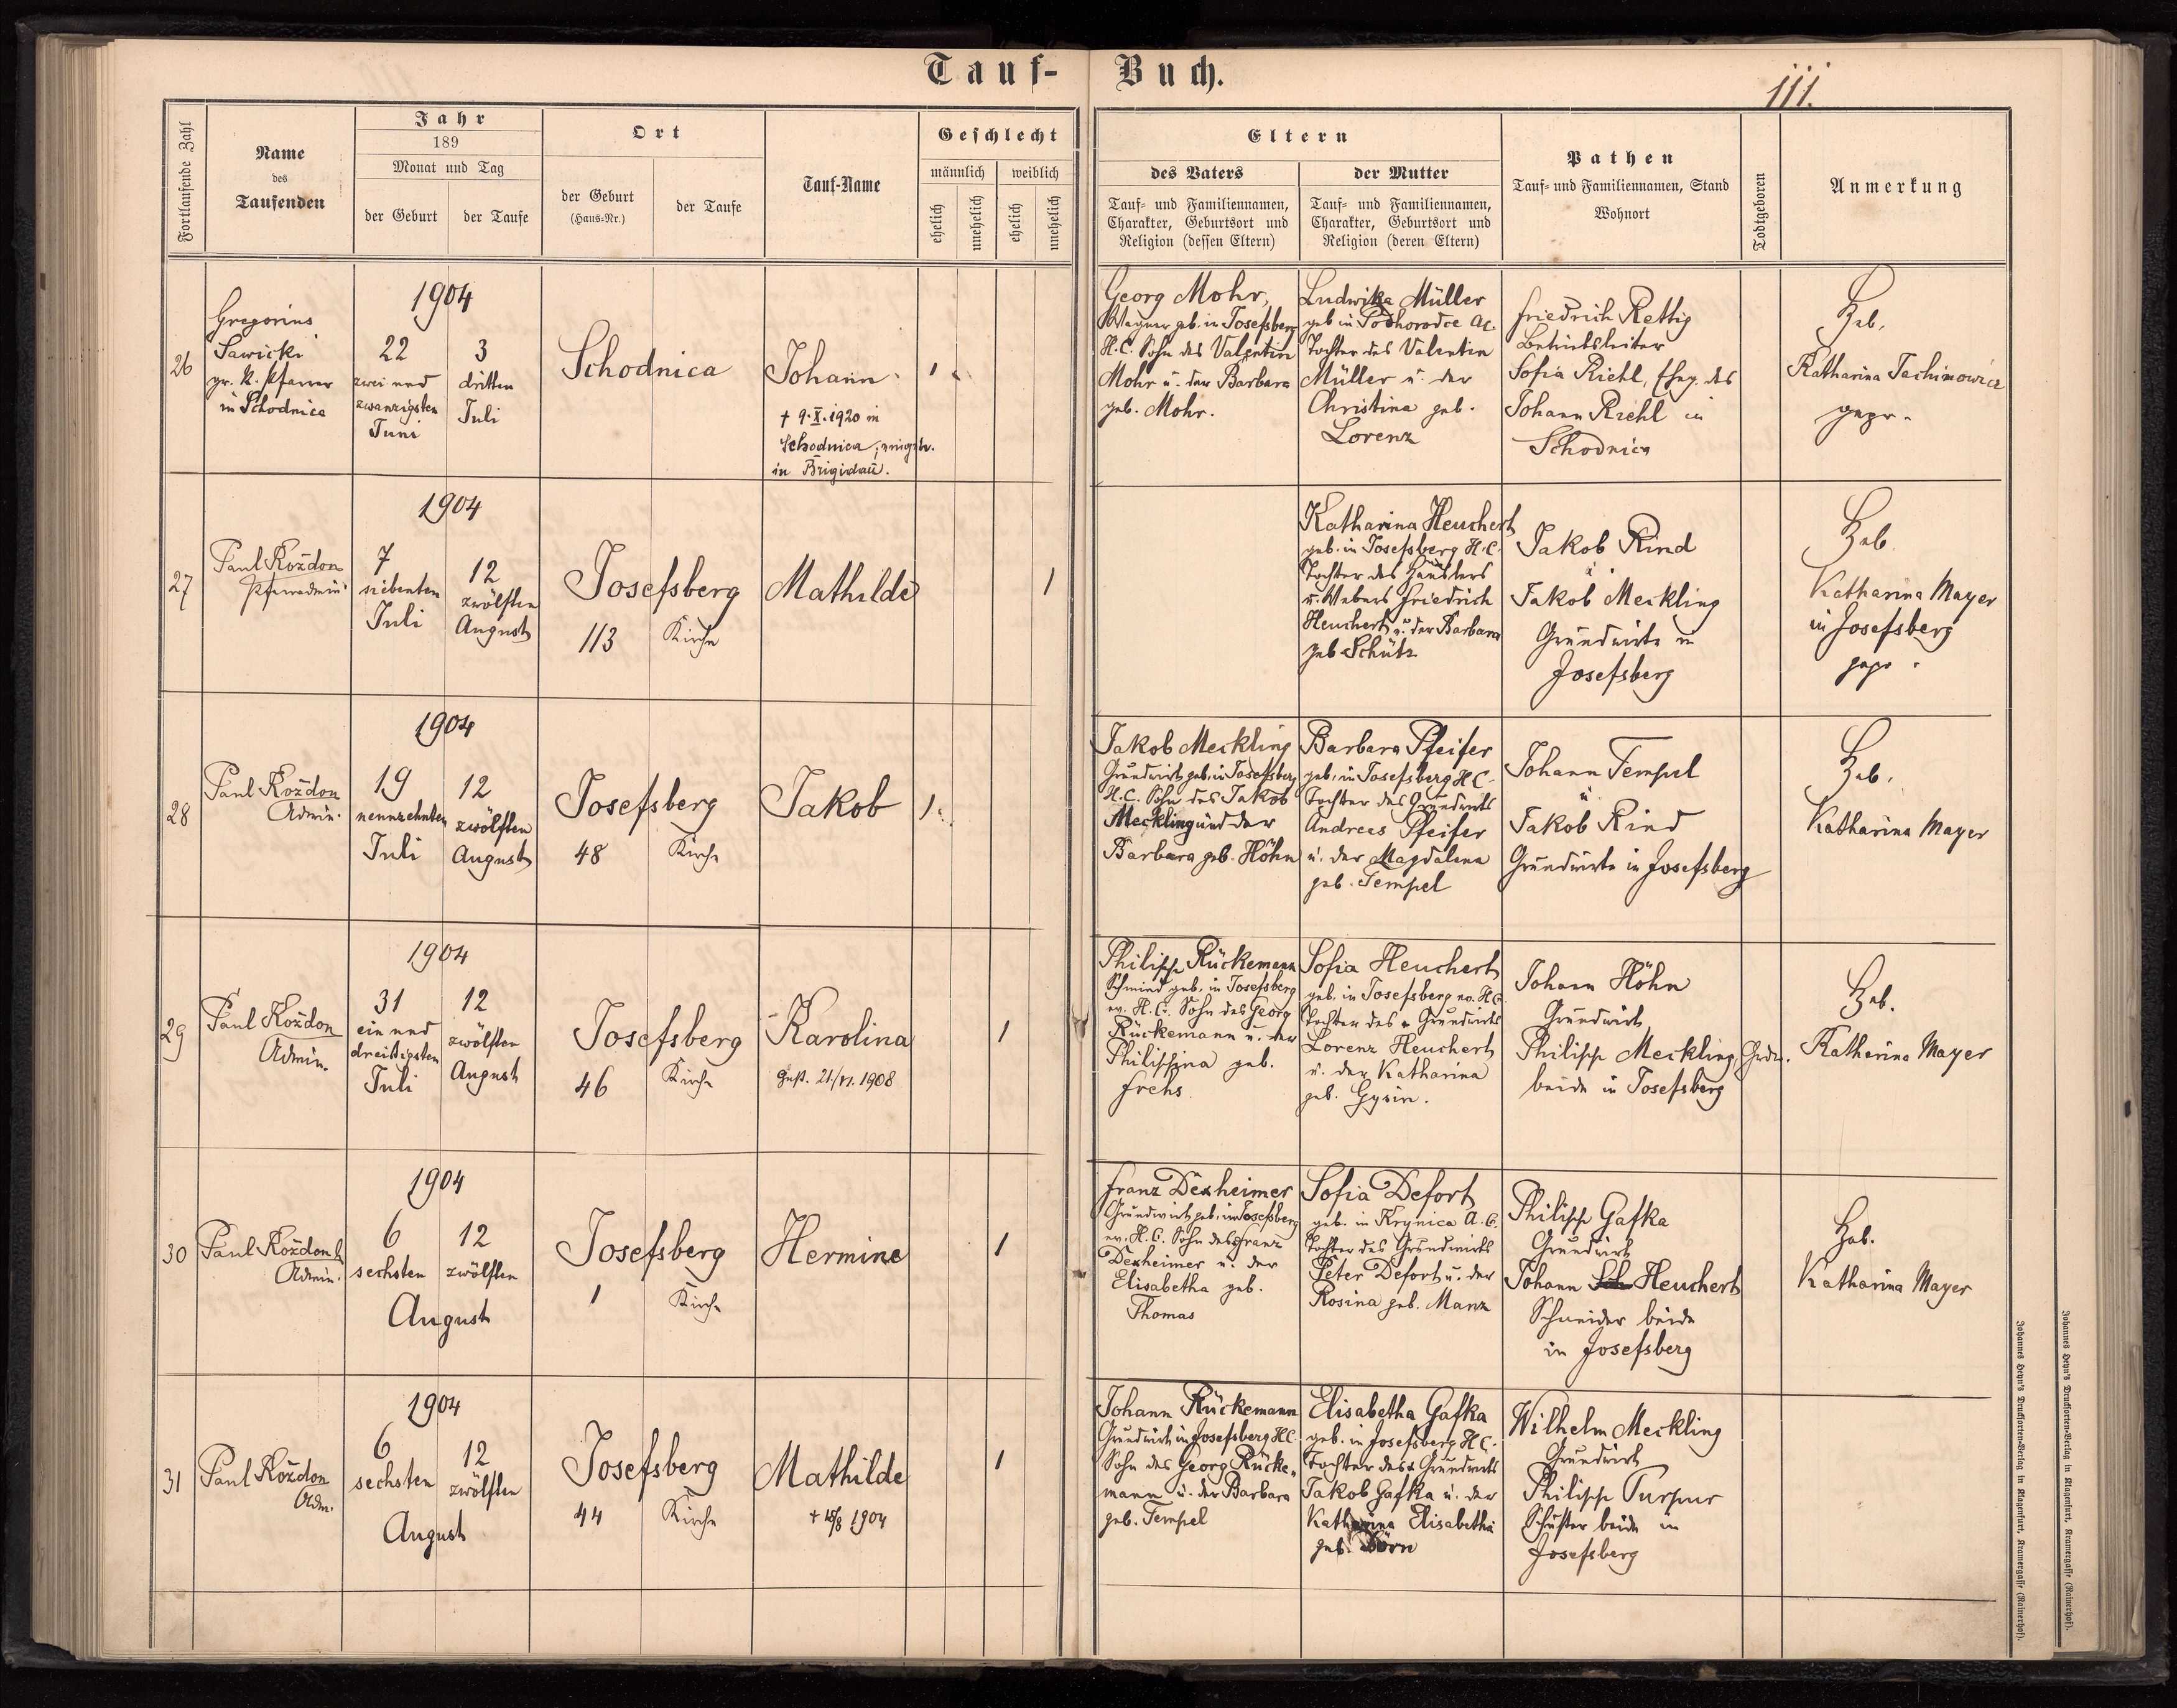 Tauf-Buch.
111.
Fortlaufende Zahl
Name
des
Taufenden
Jahr
189
Monat und Tag
der Geburt
der Taufe
Ort
der Geburt
(Haus-Nr.)
der Taufe
Tauf-Name
Geschlecht
männlich
weiblich
ehelich
unehelich
ehelich
unehelich
Eltern
des Vaters
Tauf- und Familiennamen,
Charakter, Geburtsort und
Religion (dessen Eltern)
der Mutter
Tauf- und Familiennamen,
Charakter, Geburtsort und
Religion (deren Eltern)
Pathen
Tauf- und Familiennamen, Stand
Wohnort
Todtgeboren
Anmerkung
26
Gregorius
Sawicki
gr. k. Pfarrer
in Schodnica
1904
22
zwei und
zwanzigsten
Juni
3
dritten
Juli
Schodnica
Johann
† 9.X.1920 in
Schodnica;
in Brigidau.
1
Georg Mohr,
Wagner geb. in Josefsberg
H.C. Sohn des Valentin
Mohr u. der Barbara
geb. Mohr.
Ludwika Müller
geb in Podhorodce A.C.
Tochter des Valentin
Müller u. der
Christina geb.
Lorenz
Friedrich Rettig
Betriebsleiter
Sofia Riehl, Eheg. des
Johann Riehl in
Schodnica
Heb.
Katharina Jachimowicz
gepr.
27
Paul Kozdon
Pfarradmin.
1904
7
siebenten
Juli
12
zwölften
August
Josefsberg
113
Kirche
Mathilde
1
Katharina Heuchert
geb. in Josefsberg H.C.
Tochter des Häuslers
u. Webers Friedrich
Heuchert u. der Barbara
geb Schütz
Jakob Rind
u
Jakob Meckling
Grundwirte in
Josefsberg
Heb.
Katharina Mayer
in Josefsberg
gepr.
28
Paul Kozdon
Admin.
1904
19
neunzehnten
Juli
12
zwölften
August
Josefsberg
48
Kirche
Jakob
1
Jakob Meckling
Grundwirt geb. in Josefsberg
H.C. Sohn des Jakob
Meckling und der
Barbara geb. Höhn
Barbara Pfeifer
geb. in Josefsberg H.C.
Tochter des Grundwirts
Andreas Pfeifer
u. der Magdalena
geb. Tempel
Johann Tempel
u
Jakob Rind
Grundwirte in Josefsberg
Heb.
Katharina Mayer
29
Paul Kozdon
Admin.
1904
31
ein und
dreißigsten
Juli
12
zwölften
August
Josefsberg
46
Kirche
Karolina
Gest. 21/VI. 1908
1
Philipp Rückemann
Schmied geb. in Josefsberg
ev. H.C. Sohn des Georg
Rückemann u. der
Philippina geb.
Frehs
Sofia Heuchert
geb. in Josefsberg ev. H.C.
Tochter des Grundwirts
Lorenz Heuchert
u. der Katharina
geb. Gysin.
Johann Höhn
Grundwirt
Philipp Meckling, Grdw.
beide in Josefsberg
Heb.
Katharina Mayer
30
Paul Kozdon
Admin.
1904
6
sechsten
12
zwölften
August
Josefsberg
1
Kirche
Hermine
1
Franz Dexheimer
Grundwirt geb. in Josefsberg
ev. H.C. Sohn des Franz
Dexheimer u. der
Elisabetha geb.
Thomas
Sofia Defort
geb. in Krynica A.C.
Tochter des Grundwirts
Peter Defort u. der
Rosina geb. Manz
Philipp Gafka
Grundwirt
Johann Heuchert
Schneider beide
in Josefsberg
Heb.
Katharina Mayer
31
Paul Kozdon
Adm.
1904
6
sechsten
12
zwölften
August
Josefsberg
44
Kirche
Mathilde
† 18/8 1904
1
Johann Rückemann
Grundwirt in Josefsberg H.C.
Sohn des Georg Rücke-
mann u. der Barbara
geb. Tempel
Elisabetha Gafka
geb. in Josefsberg H.C.
Tochter des Grundwirts
Jakob Gafka u. der
Katharina Elisabetha
geb. Dörn
Wilhelm Meckling
Grundwirt
Philipp Purpur
Schuster beide in
Josefsberg
Johannes Heyn's Drucksorten-Verlag in Klagenfurt, Kramergasse (Rainerhof).
Johannes Heyn's Drucksorten-Verlag in Klagenfurt, Kramergasse (Rainerhof).